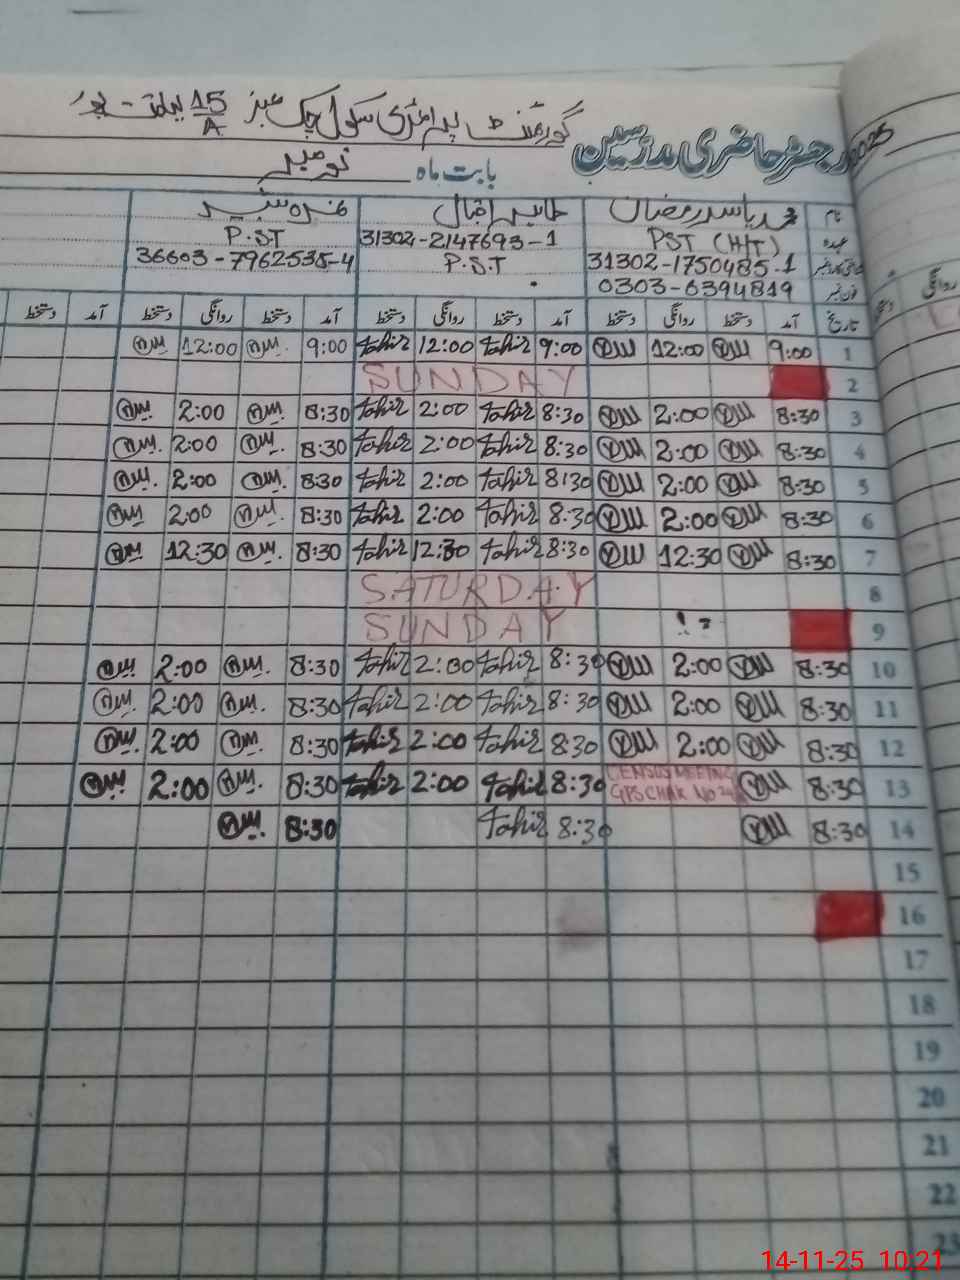 گورنمنٹ پرائمری سکول چک نمبر 15/A لیاقت پور
رجسٹر حاضری مدرسین 2025
بابت ماہ نومبر
نام محمد یاسر رمضان طاہر اقبال
عہدہ PST (H/T) 31302-2147693-1 P.ST
شناختی کارڈ نمبر 31302-1750485-1 P.S.T 36603-7962535-4
فون نمبر 0303-6394819
تاریخ آمد دستخط روانگی دستخط آمد دستخط روانگی دستخط آمد دستخط روانگی دستخط آمد دستخط روانگی
1 9:00 12:00 9:00 tahir 12:00 tahir 9:00 12:00
2 SUNDAY
3 8:30 2:00 8:30 tahir 2:00 tahir 8:30 2:00
4 8:30 2:00 8:30 tahir 2:00 tahir 8:30 2:00
5 8:30 2:00 8:30 tahir 2:00 tahir 8:30 2:00
6 8:30 2:00 8:30 tahir 2:00 tahir 8:30 2:00
7 8:30 12:30 8:30 tahir 12:30 tahir 8:30 12:30
8 SATURDAY
9 SUNDAY
10 8:30 2:00 8:30 tahir 2:00 tahir 8:30 2:00
11 8:30 2:00 8:30 tahir 2:00 tahir 8:30 2:00
12 8:30 2:00 8:30 tahir 2:00 tahir 8:30 2:00
13 8:30 CENSUS MEETING GPS CHAK NO 8:30 tahir 2:00 tahir 8:30 2:00
14 8:30 8:30 tahir 8:30
15
16
17
18
19
20
21
22
23
14-11-25 10:21